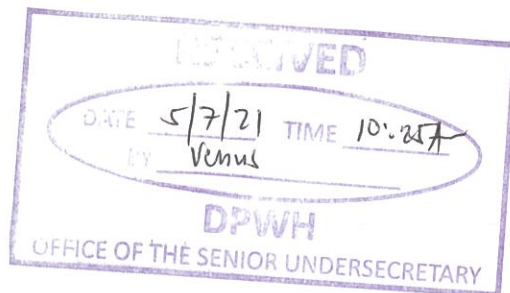 RECEIVED
DATE 5/7/21 TIME 10:25A
BY Venus
DPWH
OFFICE OF THE SENIOR UNDERSECRETARY